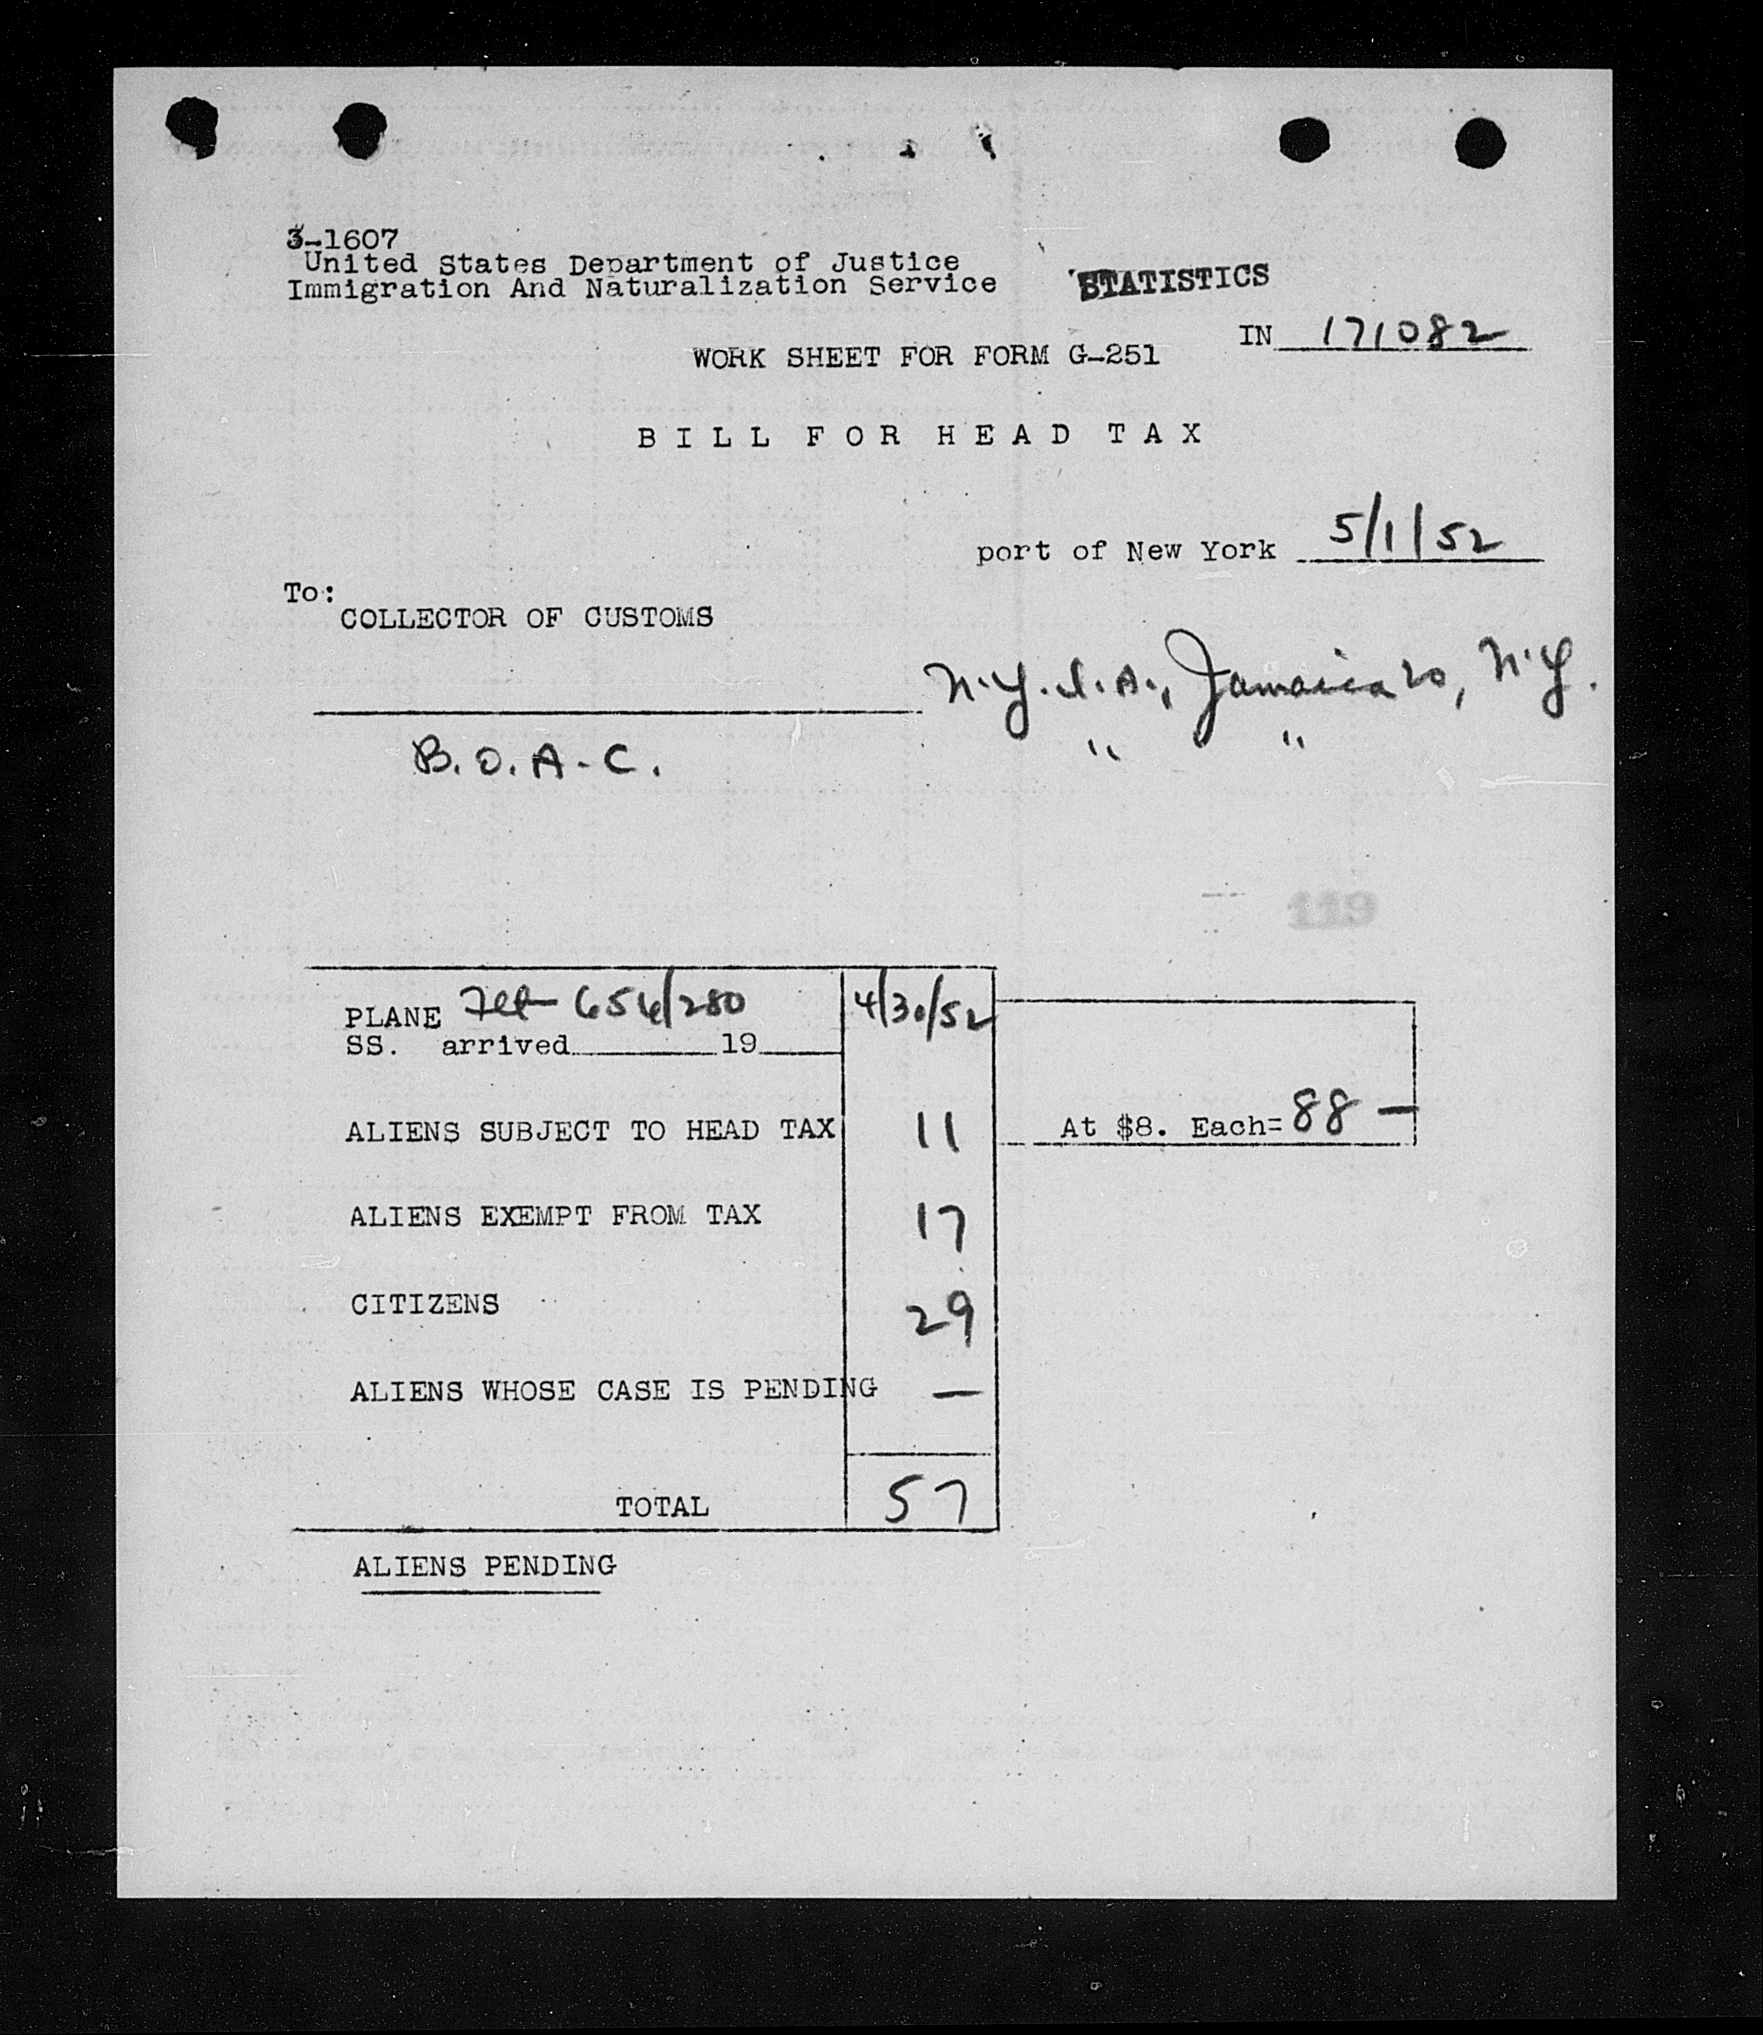 3-1607
United States Department of Justice
Immigration And Naturalization Service
STATISTICS
IN 171082
WORK SHEET FOR FORM G-251
BILL FOR HEAD TAX
port of New York 5/1/52
To:
COLLECTOR OF CUSTOMS
N.Y.I.A., Jamaica 20, N.Y.
B.O.A.C. " "
119
PLANE 654/280 4/30/52
SS. arrived 19
ALIENS SUBJECT TO HEAD TAX 11 At $8. Each= 88 —
ALIENS EXEMPT FROM TAX 17
CITIZENS 29
ALIENS WHOSE CASE IS PENDING —
TOTAL 57
ALIENS PENDING